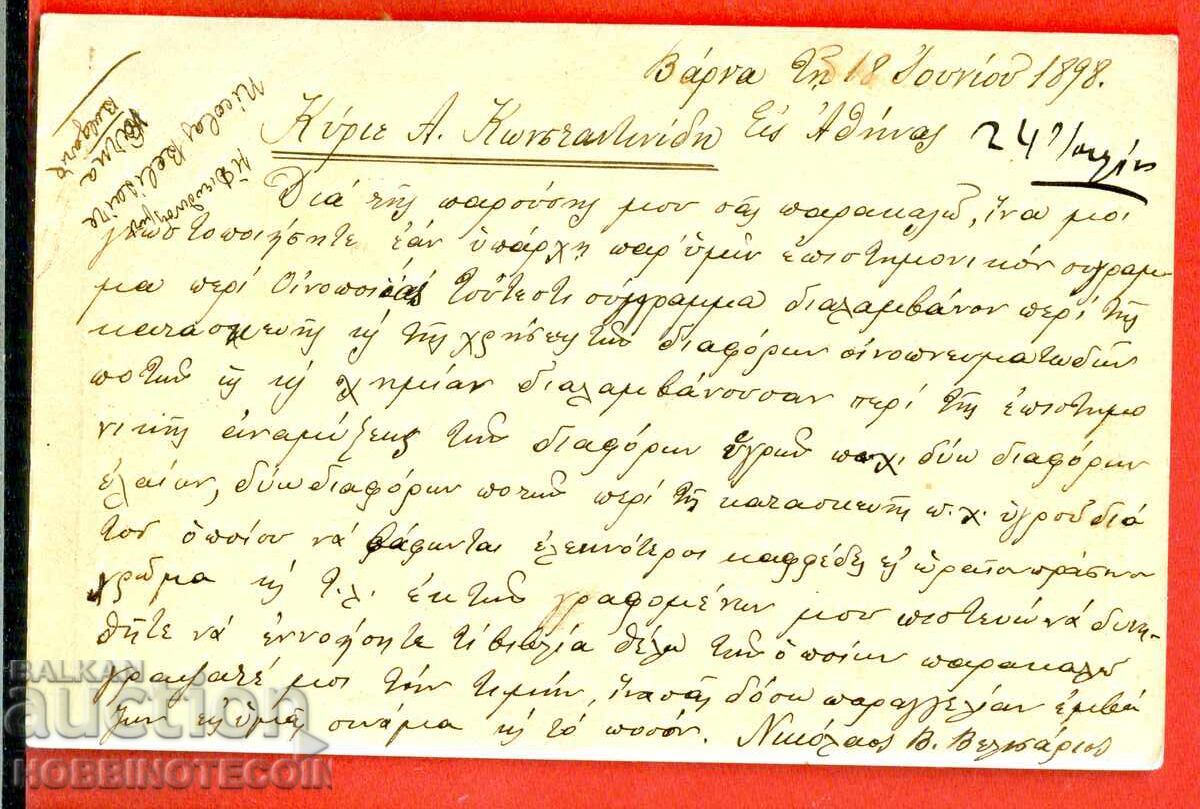 Βάρνα τῇ 18 Ἰουνίου 1898.
Κύριε Α. Κωνσταντινίδη Εἰς Ἀθήνας
24
Nicolas Belisaire
Ἡ Διεύθυνσίς μου
Varna
Bulgarie
Διὰ τῆς παρούσης μου σᾶς παρακαλῶ, ἵνα μοι
γνωστοποιήσητε ἐὰν ὑπάρχῃ παρ' ὑμῖν ἐπιστημονικόν σύγραμ-
μα περὶ Οἰνοποιίας τοὔτεστι σύγγραμμα διαλαμβάνον περὶ τῆς
κατασκευῆς κὴ τῆς χρήσεως τῶν διαφόρων οἰνοπνευματωδῶν
ποτῶν κὴ χημίαν διαλαμβάνουσαν περὶ τῆς ἐπιστημο
νικῆς ἀναμίξεως τῶν διαφόρων ὑγρῶν π.χ. δύω διαφόρων
ἐλαίων, δύω διαφόρων ποτῶν περὶ τῆς κατασκευῆς π.χ. ὑγροῦ διὰ
τοῦ ὁποίου νὰ βάφωνται ἐλεεινότεροι καφφέδες εἰς ὡραῖον πράσινον
χρῶμα κὴ τ.λ. ἐκ τῶν γραφομένων μου πιστεύω νὰ δυνη-
θῆτε νὰ ἐννοήσητε τί βιβλία θέλω τῶν ὁποίων παρακαλῶ
γράψατέ μοι τὴν τιμήν, ἵνα σᾶς δόσω παραγγελίαν ἐμβά
ζων εἰς ὑμᾶς συνάμα κὴ τὸ ποσόν. Νικόλαος Β. Βελισσάριος
BALKAN
auction
HOBBINOTECOIN